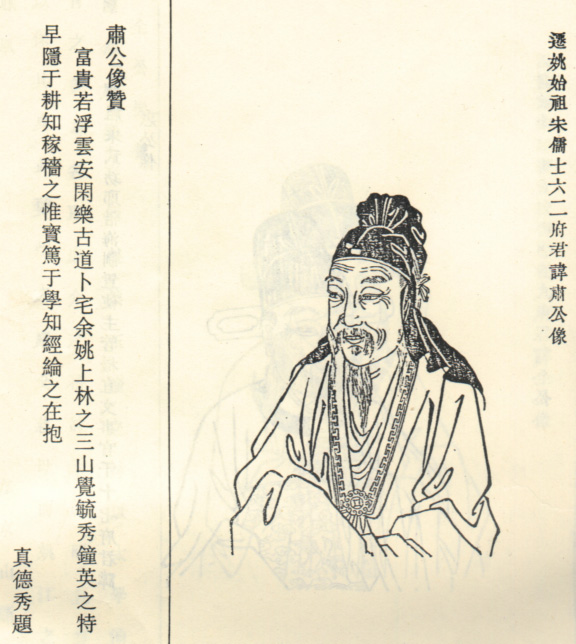 遷姚始祖朱儒士六二府君諱肅公像
肅公像贊
富貴若浮雲安閑樂古道卜宅余姚上林之三山覺毓秀鐘英之特
早隱于耕知稼穡之惟寶篤于學知經綸之在抱
真德秀題